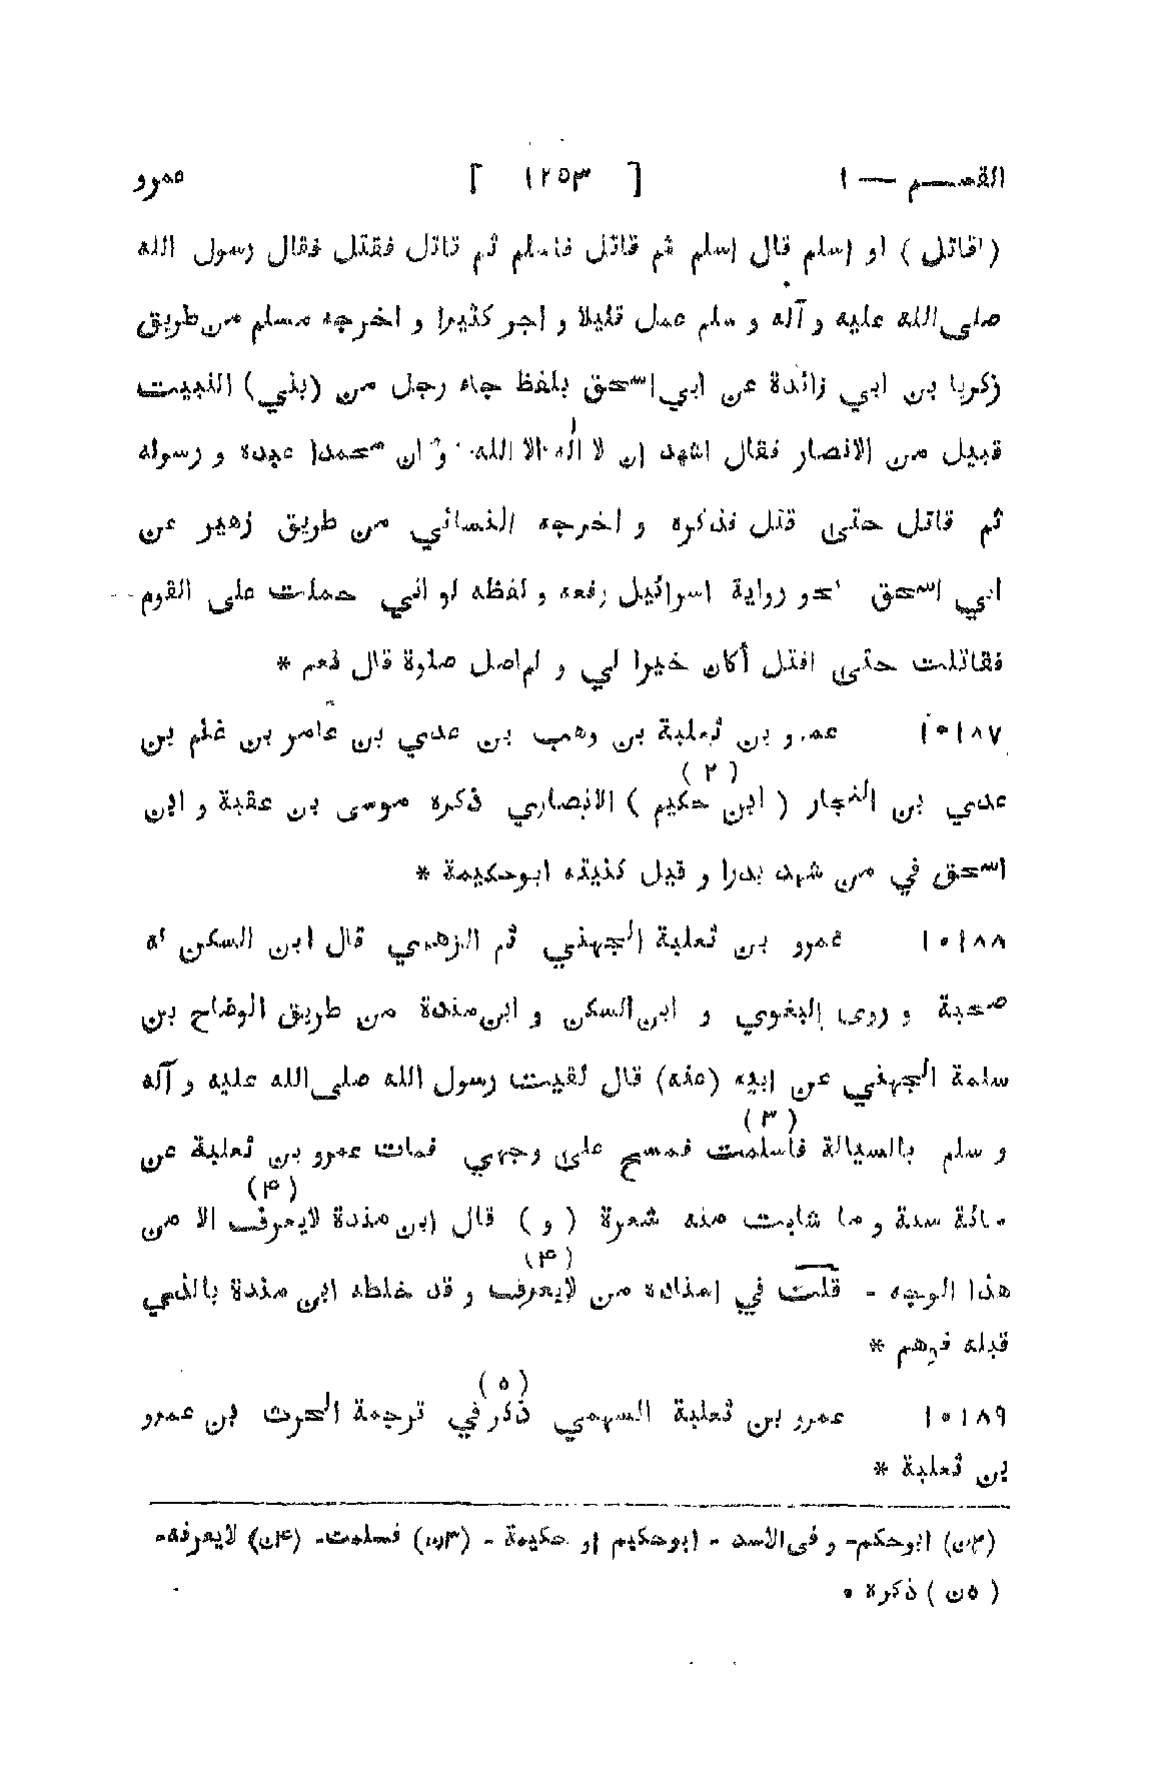 القسم — ١ [ ١٢٥٣ ] عمرو
( اقاتل ) او اسلم قال اسلم ثم قاتل فاسلم ثم قاتل فقتل فقال رسول الله
صلى الله عليه و آله و سلم عمل قليلا و اجر كثيرا و اخرجه مسلم من طريق
زكريا بن ابي زائدة عن ابي اسحق بلفظ جاء رجل من (بني) النبيت
قبيل من الانصار فقال اشهد ان لا اله الا الله و ان محمدا عبده و رسوله
ثم قاتل حتى قتل فذكره و اخرجه النسائي من طريق زهير عن
ابي اسحق نحو رواية اسرائيل رفعه و لفظه لو اني حملت على القوم
فقاتلت حتى اقتل أكان خيرا لي و لم اصل صلوة قال نعم *
١٠١٨٧ عمرو بن ثعلبة بن وهب بن عدي بن عامر بن غنم بن
عدي بن النجار ( ابن حكيم (٢) ) الانصاري ذكره موسى بن عقبة و ابن
اسحق في من شهد بدرا و قيل كنيته ابوحكيمة *
١٠١٨٨ عمرو بن ثعلبة الجهني ثم الزهدي قال ابن السكن له
صحبة و روى البغوي و ابن السكن و ابن مندة من طريق الوضاح بن
سلمة الجهني عن ابيه (عنه) قال لقيت رسول الله صلى الله عليه و آله
و سلم بالسيالة فاسلمت (٣) فمسح على وجهي فمات عمرو بن ثعلبة عن
مائة سنة و ما شابت منه شعرة ( و ) قال ابن مندة لايعرف (۴) الا من
هذا الوجه - قلت في اسناده من لايعرف (۴) و قد خلطه ابن مندة بالذي
قبله فوهم *
١٠١٨٩ عمرو بن ثعلبة السهمي ذكر (٥) في ترجمة الحرث بن عمرو
بن ثعلبة *
(٢ن) ابوحكم - و فى الاسد - ابوحكيم او حكيمة - (٣ن) فسلمت - (۴ن) لايعرفه -
( ٥ن ) ذكره •